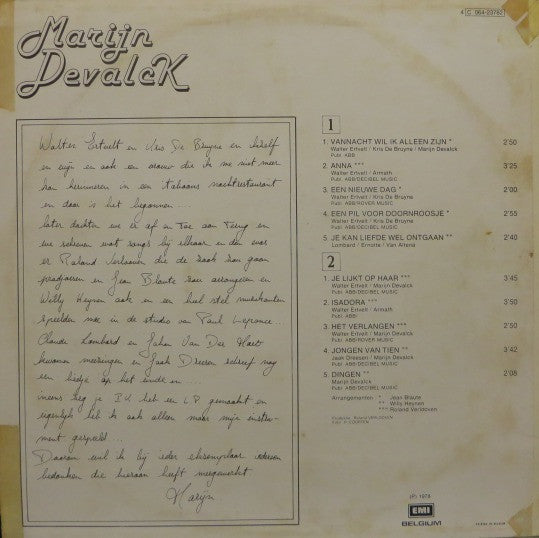 4 C 064-23782
Marijn
Devalck
Walter Ertvelt en Kris De Bruyne en ikzelf
en wijn en ook een vrouw die ik me niet meer
kan herinneren in een Italiaans nachtrestaurant
en daar is het begonnen....
later dachten we er af en toe aan terug en
we schreven wat songs bij elkaar en dan was
er Roland Verlooven die de zaak kon gaan
produceren en Jean Blaute zou arrangeren en
Willy Heynen ook en een heel stel muzikanten
speelden mee in de studio van Paul
Claude Lombard en Johan Van Der
kwamen meezingen en Jaak Dreesen schreef nog
een liedje op het einde en....
ineens heb je B.V. het een LP gemaakt en
eigenlijk heb ik ook alleen maar mijn instru-
ment gespeeld...
Daarom wil ik bij ieder eksemplaar iedereen
bedanken die hieraan heeft meegewerkt.
Marijn
1
1. VANNACHT WIL IK ALLEEN ZIJN * 2'50
Walter Ertvelt / Kris De Bruyne / Marijn Devalck
Publ. ABB
2. ANNA *** 3'25
Walter Ertvelt / Armath
Publ. ABB/DECIBEL MUSIC
3. EEN NIEUWE DAG * 2'00
Walter Ertvelt / Kris De Bruyne
Publ. ABB/ROVER MUSIC
4. EEN PIL VOOR DOORNROOSJE * 2'55
Walter Ertvelt / Kris De Bruyne
Publ. ABB/DECIBEL MUSIC
5. JE KAN LIEFDE WEL ONTGAAN ** 2'40
Lombard / Ernotte / Van Altena
2
1. JE LIJKT OP HAAR *** 3'45
Walter Ertvelt / Marijn Devalck
Publ. ABB/DECIBEL MUSIC
2. ISADORA *** 3'50
Walter Ertvelt / Armath
Publ. ABB
3. HET VERLANGEN *** 2'50
Walter Ertvelt / Marijn Devalck
Publ. ABB/ROVER MUSIC
4. JONGEN VAN TIEN ** 3'42
Jaak Dreesen / Marijn Devalck
Publ. ABB/DECIBEL MUSIC
5. DINGEN ** 2'08
Marijn Devalck
Publ. ABB/DECIBEL MUSIC
Arrangementen * Jean Blaute
** Willy Heynen
*** Roland Verlooven
Produktie: Roland VERLOOVEN
(P) 1978
EMI
BELGIUM
PRINTED IN BELGIUM